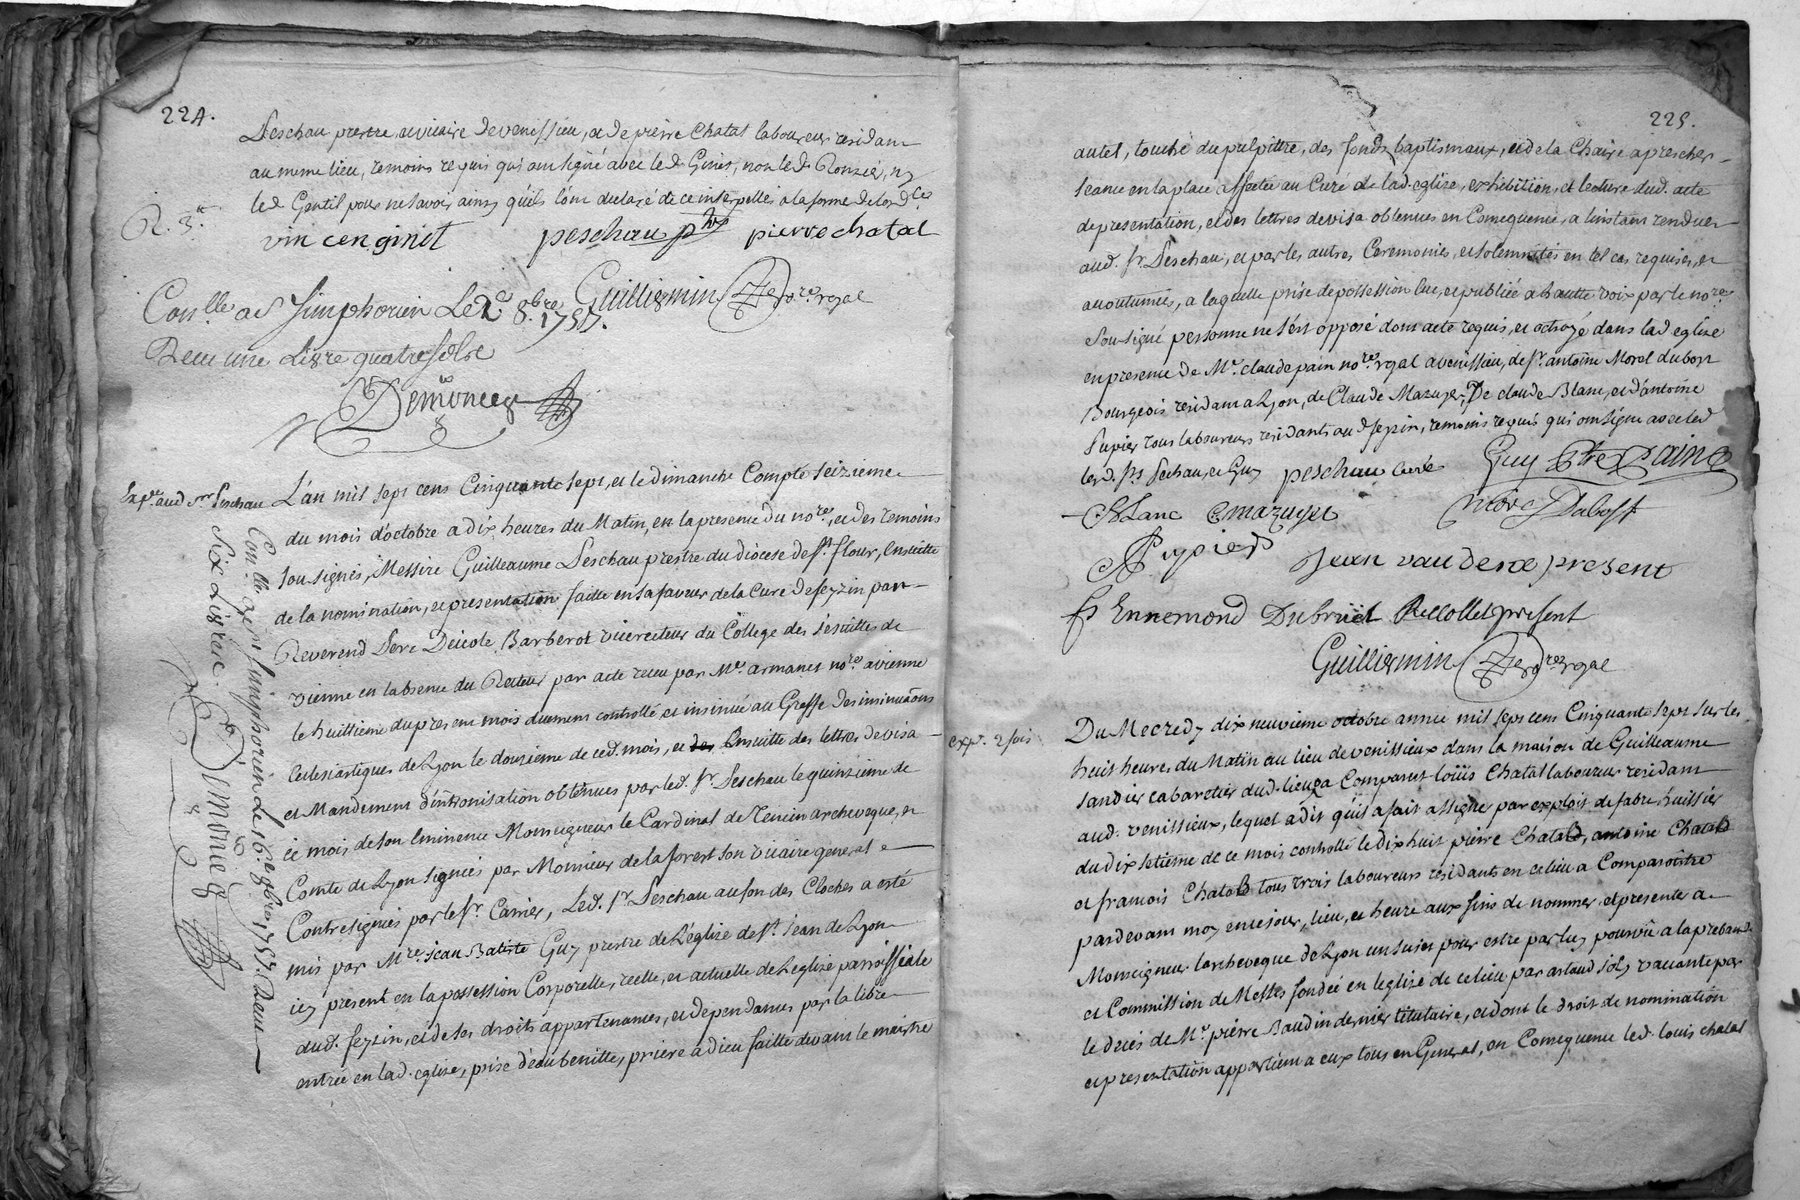 224.
Peschau prestre, et vicaire de venissieu, et de pierre Chatal laboureur residant
au meme lieu, temoins requis qui ont signé avec led. Ginet, non led. Ronzier, ny
led Gentil pour ne savoir, ainsy qu'ils l'ont declaré de ce interpellés a la forme de l'ordce
R. 3e
vincen ginet peschau ptre pierre chatal
Guillermin nore royal
Conlle a St Simphorien Le 2e 8bre 1757.
Receu une Livre quatre sols
Demonceg
Expé. aud. Sr Peschau
L'an mil sept cens Cinquante sept, et le dimanche Compté seizieme
du mois d'octobre a dix heures du Matin, en la presence du nore, et des temoins
sousignés, Messire Guilleaume Peschau prestre du diocese de St. flour, Ensuitte
de la nomination, et presentation faitte en sa faveur de la Cure de feyzin par
Reverend Pere Deicole Barberot vicerecteur du College des Jesuittes de
vienne en l'absence du Recteur par acte receu par Me armanet nore a vienne
le huittieme du present mois duement controllé et insinué au Greffe des insinuãons
Eclesiastiques de Lyon le douzieme de ced. mois, et des Ensuitte des lettres de visa
et Mandement d'intronisation obtenues par led. Sr. Peschau le quinzieme de
ce mois de son Eminence Monseigneur le Cardinal de Tencin archeveque, et
Comte de Lyon signées par Monsieur de la forest son vicaire general et
Contresignées par le Sr. Carrier, Led. Sr Peschau au son des Cloches a esté
mis par Mre. jean Batiste Guy prestre de L'église de St. jean de Lyon
icy present en la possession Corporelle, reelle, et actuelle de L'eglise parroissiale
dud. feyzin, et de ses droits appartenances, et dependances par la libre
entrée en lad. eglise, prise d'eau benitte, priere a dieu faitte devant le maistre
Conlle a St Simphorien Le 16e 8bre 1757. Receu
Six Livres.
Demonceg
225.
autel, touché du pulpittre, des fonds baptismaux, et de la Chaire a prescher
seance en la place affectée au Curé de lad. eglise, exhibition, et lecture dud. acte
de presentation, et des lettres de visa obtenues en Consequence, a l'instant rendues
aud. Sr Peschau, et par les autres Ceremonies, et solemnités en tel cas requises, et
acoutumées, a laquelle prise de possession lue, et publiée a hautte voix par le nore.
sousigné personne ne s'est opposé dont acte requis, et octroyé dans lad eglise
en presence de Me. claude pain nore royal a venissieu, de Sr. antoine Morel dubost
Bourgeois residant a Lyon, de Claude Mazuyer, De claude Blanc, et d'antoine
Pupier tous laboureurs residants aud feyzin, temoins requis qui ont signé avec led
lesd. Srs Peschau, et Guy peschau curé Guy ptre pain
Blanc C mazuyer morel Dubost
A Pupier
Jean vaudene present
fr Ennemond Dubruet Recollet present
Guillermin nore royal
expé. 2 fois
Du Mecredy dix neuvieme octobre année mil sept cens Cinquante sept sur les
huit heures du Matin au lieu de venissieux dans la maison de Guilleaume
sandier cabaretier dud. lieu, a Comparut loüis Chatal laboureur residant
aud. venissieux, lequel a dit qu'il a fait assigner par exploit de fabre huissier
du dix setieme de ce mois controllé le dix huit pierre Chatal, antoine Chatal
et francois Chatal tous trois laboureurs residants en ce lieu a Comparoittre
pardevant moy en ce jour, lieu, et heure aux fins de nommer et presenter a
Monseigneur l'archeveque de Lyon un sujet pour estre par luy pourvû a la prebande
et Commission de Messes fondée en leglise de ce lieu par artaud joly vacante par
le deces de Me. pierre Baudin dernier titulaire, et dont le droit de nomination
et presentation appartient a eux tous en General, en Consequence led. louis chatal